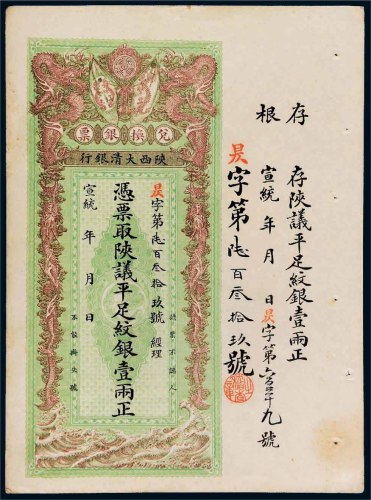 存根
存陝議平足紋銀壹兩正
宣統 年 月 日 昃字第六百三十九號
昃字第陸百叁拾玖號
兌換銀票
陝西大清銀行
認票不認人
昃字第陸百叁拾玖號 經理
憑票取陝議平足紋銀壹兩正
宣統 年 月 日
不能掛失號